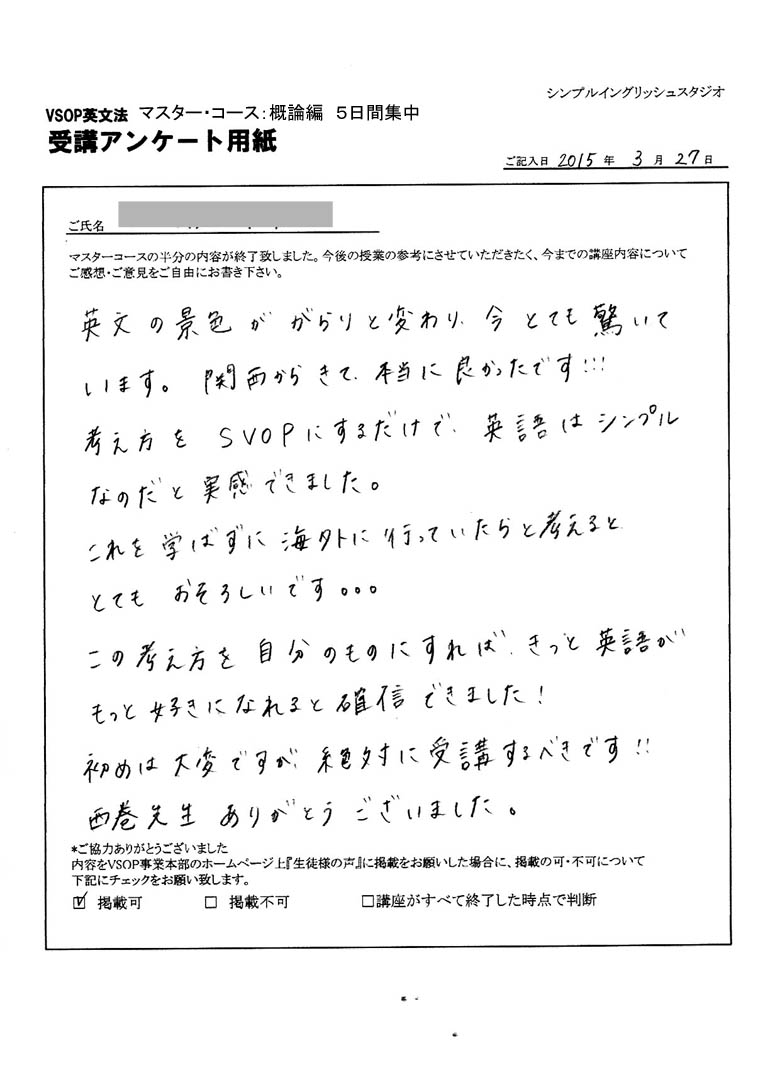 シンプルイングリッシュスタジオ
VSOP英文法 マスター・コース：概論編 5日間集中
受講アンケート用紙
ご記入日 2015 年 3 月 27 日
ご氏名
マスターコースの半分の内容が終了致しました。今後の授業の参考にさせていただきたく、今までの講座内容について
ご感想・ご意見をご自由にお書き下さい。
英文の景色が がらりと変わり、今 とても 驚いて
います。 関西から きて、本当に 良かったです!!!
考え方を SVOPにするだけで、英語は シンプル
なのだと 実感できました。
これを 学ばずに 海外に 行っていたらと考えると
とても おそろしいです。。。
この考え方を 自分のものにすれば、きっと 英語が
もっと 好きになれると 確信できました!
初めは 大変ですが、絶対に 受講するべきです!!
西巻先生 ありがとう ございました。
*ご協力ありがとうございました
内容をVSOP事業本部のホームページ上『生徒様の声』に掲載をお願いした場合に、掲載の可・不可について
下記にチェックをお願い致します。
☑ 掲載可 □ 掲載不可 □講座がすべて終了した時点で判断